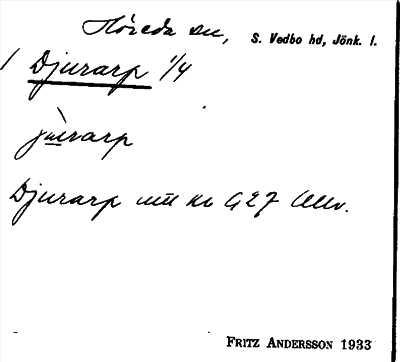 Höreda sn, S. Vedbo hd, Jönk. l.
/ Djurarp 1/4
jùrarp
Djurarp
FRITZ ANDERSSON 1933